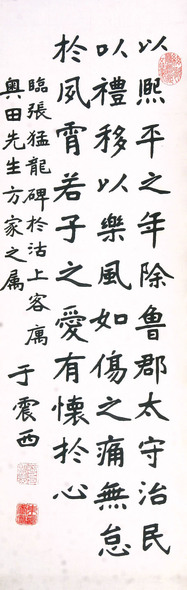 以熙平之年除魯郡太守治民
以禮移以樂風如傷之痛無怠
於夙霄若子之愛有懷於心
臨張猛龍碑於沽上客寓
奥田先生方家之属
于震西